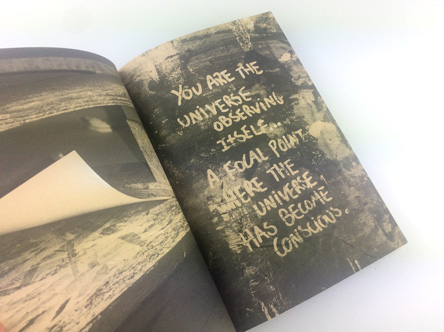 YOU ARE THE
UNIVERSE
OBSERVING
ITSELF..
A FOCAL POINT
WHERE THE
UNIVERSE
HAS BECOME
CONSCIOUS.